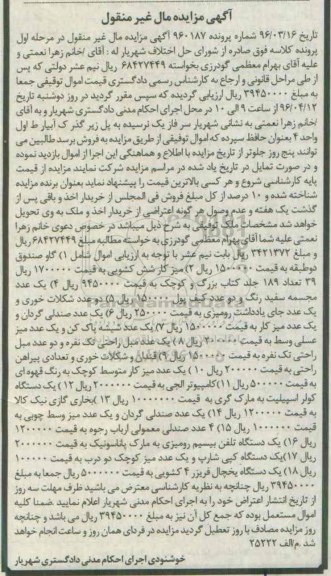 آگهی مزایده مال غیر منقول
تاریخ ۹۶/۰۳/۱۶ شماره پرونده ۹۶۰۱۸۷ آگهی مزایده مال غیر منقول در مرحله اول
پرونده کلاسه فوق صادره از شورای حل اختلاف شهریار له : آقای /خانم زهرا نعمتی و
علیه آقای بهرام معظمی گودرزی بخواسته ۶۸۴۲۷۴۴۹ ریال نیم عشر دولتی که پس
از طی مراحل قانونی و ارجاع به کارشناس رسمی دادگستری قیمت اموال توقیفی جمعا
به مبلغ ۳۹۴۵۰۰۰۰ ریال ارزیابی گردیده که سپس مقرر گردید در روز دوشنبه تاریخ
۹۶/۰۴/۱۲ از ساعت ۹ الی ۱۰ در محل اجرای احکام مدنی دادگستری شهریار و به آقای
/خانم زهرا نعمتی به نشانی شهریار سر فاز یک نرسیده به پل زیر گذر ک آبیار ط اول
واحد ۴ بعنوان حافظ سپرده که اموال توقیفی از طریق مزایده به فروش برسد طالبین می
توانند پنج روز جلوتر از تاریخ مزایده با اطلاع و هماهنگی این اجرا از اموال بازدید نموده
و در صورت تمایل در تاریخ یاد شده در مراسم مزایده شرکت نمایند مزایده از قیمت
پایه کارشناسی شروع و هر کسی بالاترین قیمت را پیشنهاد نماید بعنوان برنده مزایده
شناخته شده و ۱۰ درصد از کل مبلغ فروش فی المجلس از خریدار اخذ و باقی پس از
گذشت یک هفته و عدم وصول هر گونه اعتراضی از خریدار اخذ و ملک به وی تحویل
خواهد شد مشخصات ملک توقیفی به شرح ذیل میباشد در خصوص دعوی خانم زهرا
نعمتی علیه شما آقای بهرام معظمی گودرزی به خواسته مطالبه مبلغ ۶۸۴۲۷۴۴۹ ریال
و مبلغ ۳۴۲۱۳۷۲ ریال بابت نیم عشر با توجه به ارزیابی اموال شامل ۱) گاو صندوق
دوطبقه به قیمت ۱۵۰۰۰۰۰ ریال ۲) میز کار شش کشویی به قیمت ۱۷۰۰۰۰۰ ریال
۳) تعداد ۱۸۹ جلد کتاب بزرگ و کوچک به قیمت ۹۴۵۰۰۰۰ ریال ۴) یک عدد
مجسمه سفید رنگ و دو عدد کیف پول ۱۵۰۰۰۰ ریال ۵) دو عدد شکلات خوری و
یک عدد جای یادداشت رومیزی به قیمت ۲۵۰۰۰۰ ریال ۶) یک عدد صندلی گردان و
یک عدد میز کار به قیمت ۱۵۰۰۰۰۰ ریال ۷) یک عدد شیشه پاک کن و یک عدد میز
عسلی وسط به قیمت ریال ۸) یک عدد مبل راحتی تک نفره و دو عدد مبل
راحتی تک نفره به قیمت ۱۵۰۰۰۰۰ ریال ۹) قندان و شکلات خوری و تعدادی پیراهن
راحتی به قیمت ۲۰۰۰۰۰ ریال ۱۰) یک عدد میز کار متوسط کوچک به رنگ قهوه ای
به قیمت ۵۰۰۰۰۰ ریال ۱۱) کامپیوتر الجی به قیمت ۲۰۰۰۰۰۰ ریال ۱۲) یک دستگاه
کولر اسپیلیت به مارک گری به قیمت ۱۰۰۰۰۰۰۰ ریال ۱۳) بخاری گازی نیک کالا
به قیمت ۱۲۰۰۰۰۰ ریال ۱۴) یک عدد صندلی گردان و یک عدد میز وسط چوبی به
قیمت ۱۰۰۰۰۰۰ ریال ۱۵) ۴ عدد صندلی معمولی ارباب رجوع به قیمت ۱۲۰۰۰۰۰
ریال ۱۶) یک دستگاه تلفن بیسیم رومیزی به مارک پاناسونیک به قیمت ۲۰۰۰۰۰
ریال ۱۷) یک دستگاه کپی شارپ و یک عدد میز کوچک دو درب به قیمت
ریال ۱۸) یک دستگاه یخچال فریزر ۴ کشویی به قیمت ۵۰۰۰۰۰۰ ریال جمعا به مبلغ
۳۹۴۵۰۰۰۰ ریال چنانچه به نظریه کارشناسی معترض می باشید ظرف مهلت سه روز
از تاریخ انتشار اعتراض خود را به اجرای احکام مدنی شهریار اعلام نمایید ضمنا کلیه
اموال مستعمل بوده که جمع کل آن نیز به مبلغ ۳۹۴۵۰۰۰۰ ریال می باشد و چنانچه
روز مزایده مصادف با روز تعطیل گردید مزایده در فردای همان روز و ساعت انجام خواهد
شد .م/الف ۲۵۲۲۲
خوشنودی اجرای احکام مدنی دادگستری شهریار